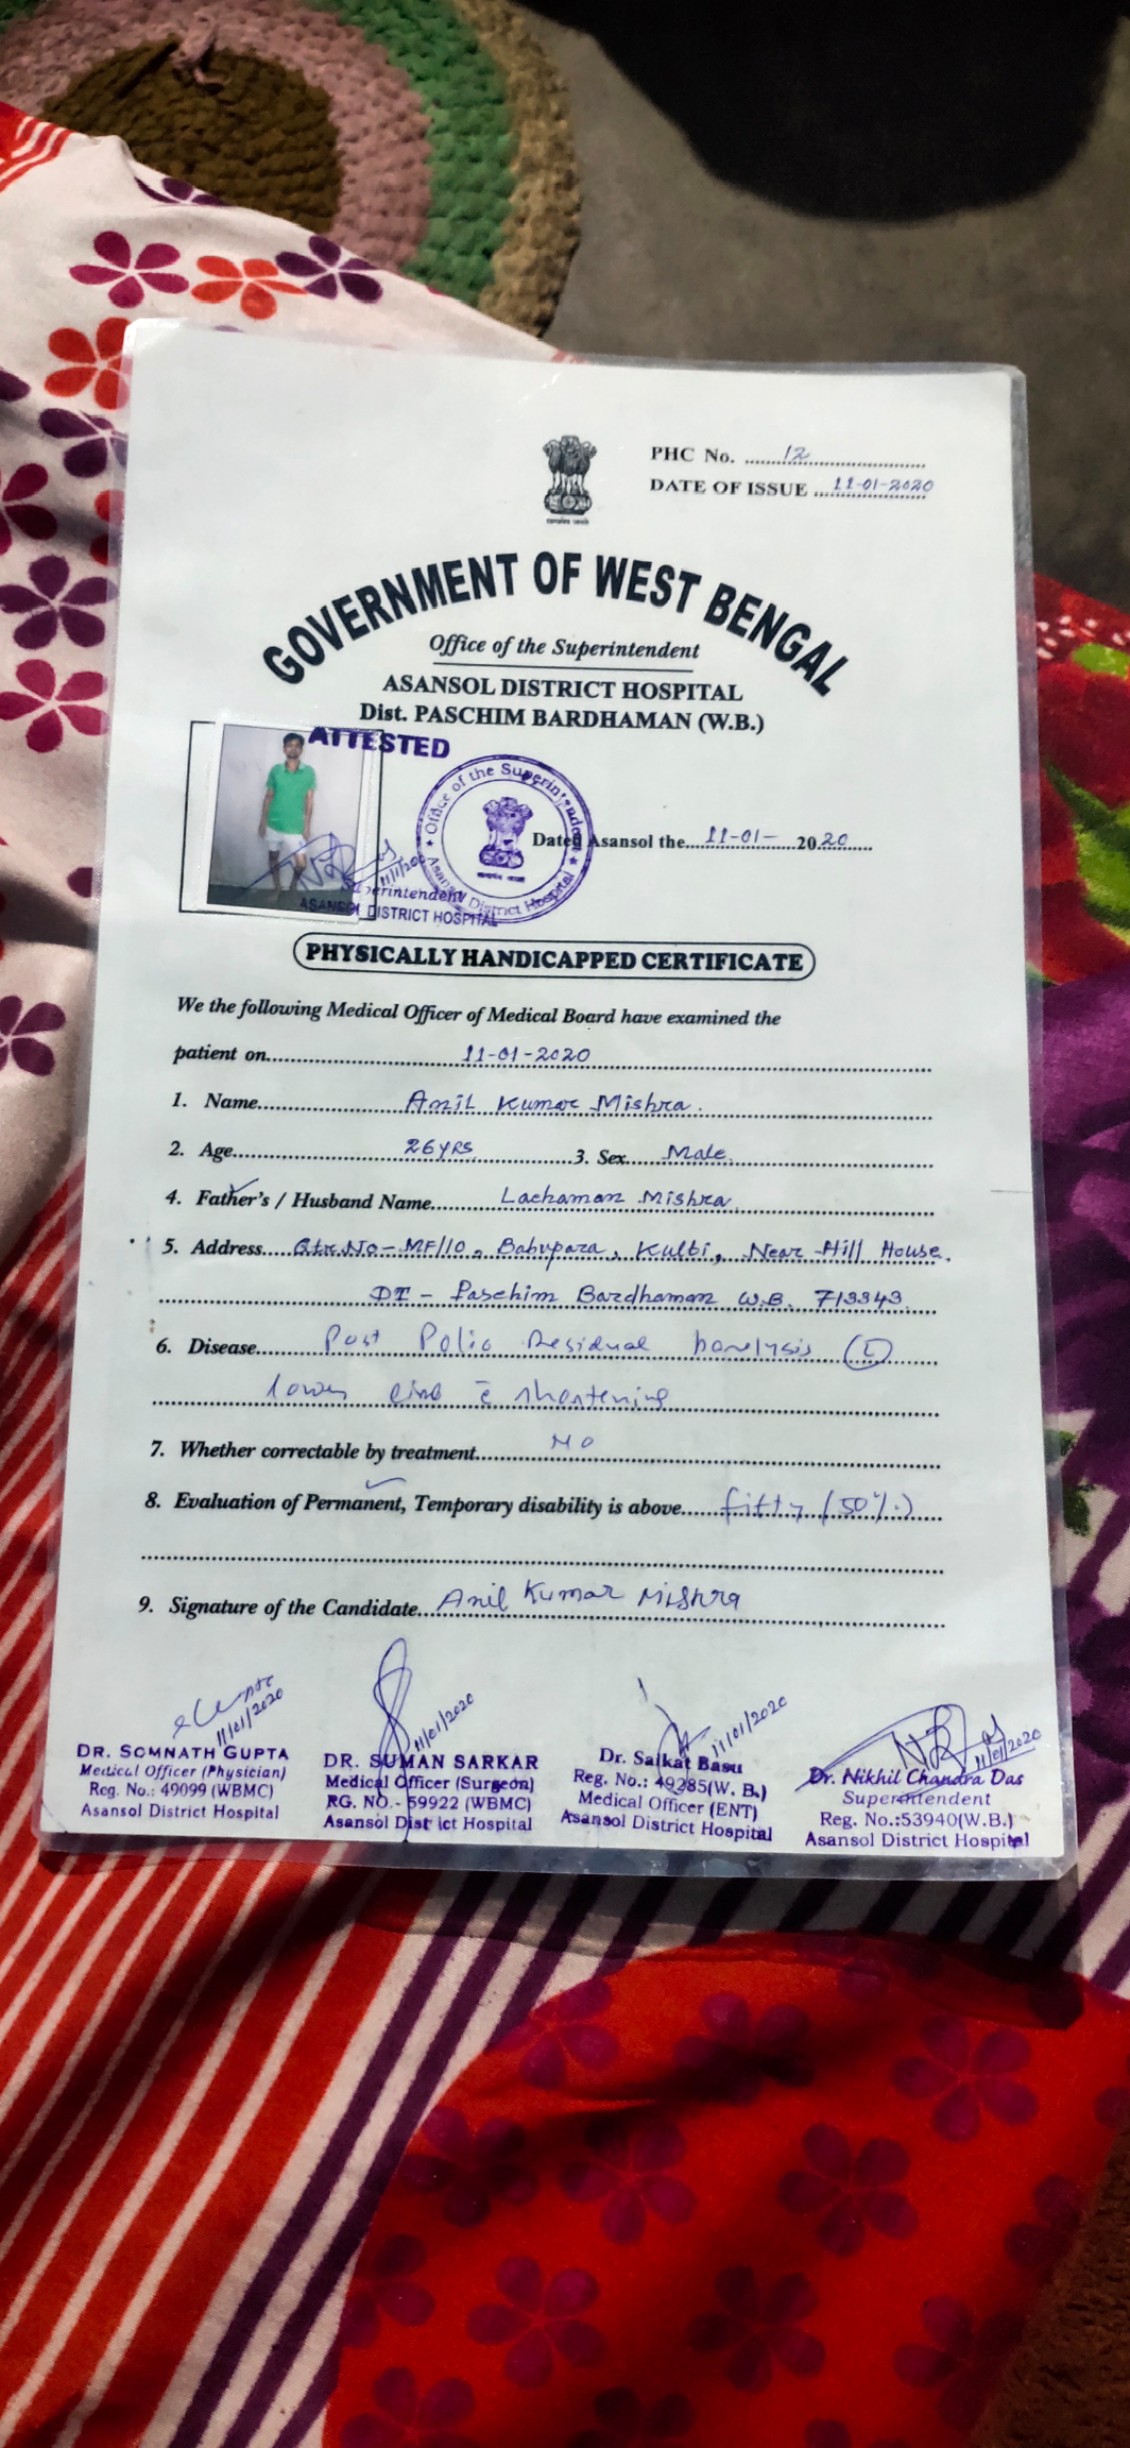 PHC No. ......12......
DATE OF ISSUE ....11-01-2020
GOVERNMENT OF WEST BENGAL
Office of the Superintendent
ASANSOL DISTRICT HOSPITAL
Dist. PASCHIM BARDHAMAN (W.B.)
ATTESTED
Office of the Superintendent
Asansol District Hospital
Dated Asansol the....11-01-....2020......
11/1/20
Superintendent
ASANSOL DISTRICT HOSPITAL
PHYSICALLY HANDICAPPED CERTIFICATE
We the following Medical Officer of Medical Board have examined the
patient on..........11-01-2020..........
1. Name..........Anil Kumar Mishra.
2. Age..........26 YRS..........3. Sex....Male.
4. Father's / Husband Name..........Lachaman Mishra.
5. Address....Qtr.No-MF/10, Babupara, Kulbi, Near Hill House.
DT - Paschim Bardhaman W.B. 713343.
6. Disease..........Post Polio Residual Paralysis (L)
lower limb c̄ shortening
7. Whether correctable by treatment..........NO
8. Evaluation of Permanent, Temporary disability is above......fifty (50%.)
9. Signature of the Candidate...Anil Kumar Mishra
11/01/2020
11/01/2020
11/01/2020
11/01/2020
DR. SOMNATH GUPTA
Medical Officer (Physician)
Reg. No.: 49099 (WBMC)
Asansol District Hospital
DR. SUMAN SARKAR
Medical Officer (Surgeon)
RG. NO.- 59922 (WBMC)
Asansol District Hospital
Dr. Saikat Basu
Reg. No.: 49285(W. B.)
Medical Officer (ENT)
Asansol District Hospital
Dr. Nikhil Chandra Das
Superintendent
Reg. No.:53940(W.B.)
Asansol District Hospital